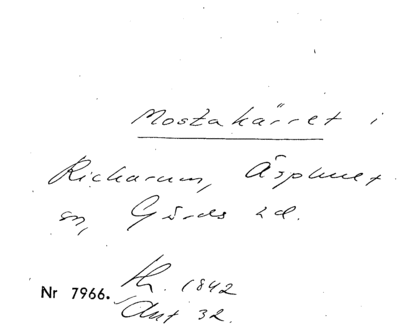 Mostakärret i
Richarum, Äsphult
sn, Gärds hd.
Nr 7966. Kh. 1842
Akt 32.